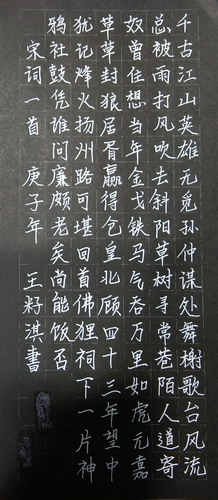 千古江山英雄无觅孙仲谋处舞榭歌台风流
总被雨打风吹去斜阳草树寻常巷陌人道寄
奴曾住想当年金戈铁马气吞万里如虎元嘉
草草封狼居胥赢得仓皇北顾四十三年望中
犹记烽火扬州路可堪回首佛狸祠下一片神
鸦社鼓凭谁问廉颇老矣尚能饭否
宋词一首 庚子年 王籽淇書